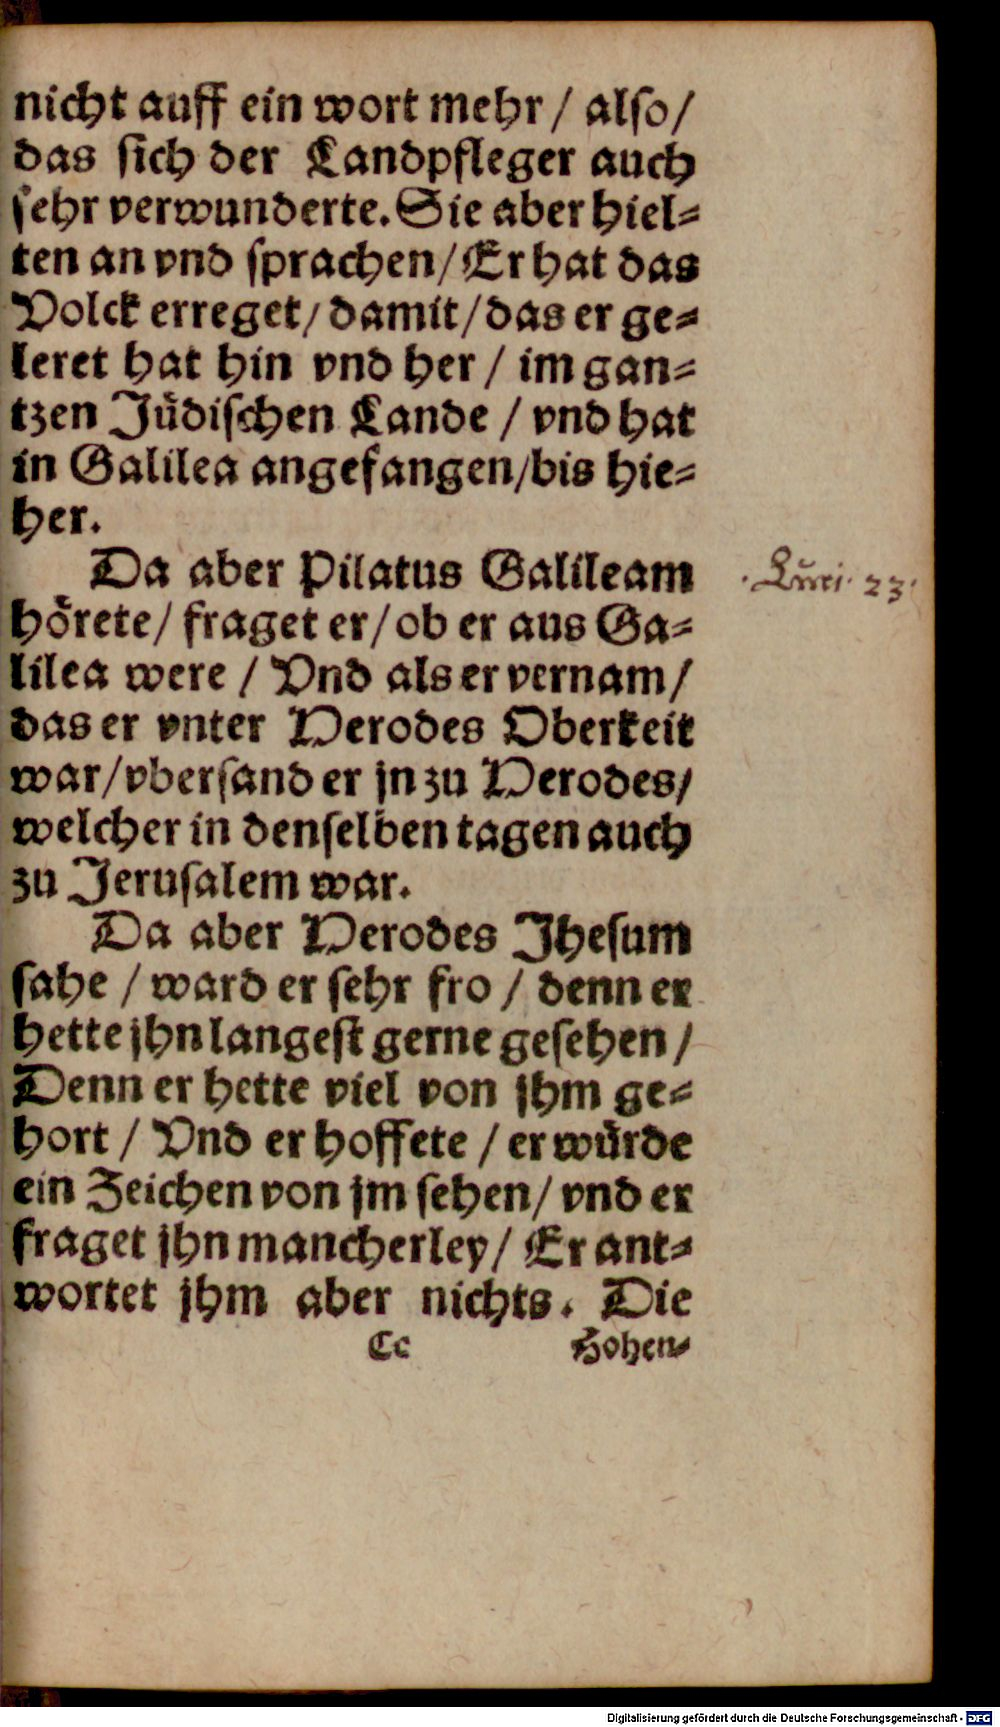 nicht auff ein wort mehr / also /
das sich der Landpfleger auch
sehr verwunderte. Sie aber hiel-
ten an vnd sprachen / Er hat das
Volck erreget / damit / das er ge-
leret hat hin vnd her / im gan-
tzen Jüdischen Lande / vnd hat
in Galilea angefangen / bis hie-
her.
Da aber Pilatus Galileam
hörete / fraget er / ob er aus Ga-
lilea were / Vnd als er vernam /
das er vnter Herodes Oberkeit
war / vbersand er jn zu Herodes /
welcher in denselben tagen auch
zu Jerusalem war.
Da aber Herodes Jhesum
sahe / ward er sehr fro / denn er
hette jhn langest gerne gesehen /
Denn er hette viel von jhm ge-
hort / Vnd er hoffete / er würde
ein Zeichen von jm sehen / vnd er
fraget jhn mancherley / Er ant-
wortet jhm aber nichts. Die
Cc Hohen-
23
Digitalisierung gefördert durch die Deutsche Forschungsgemeinschaft - DFG